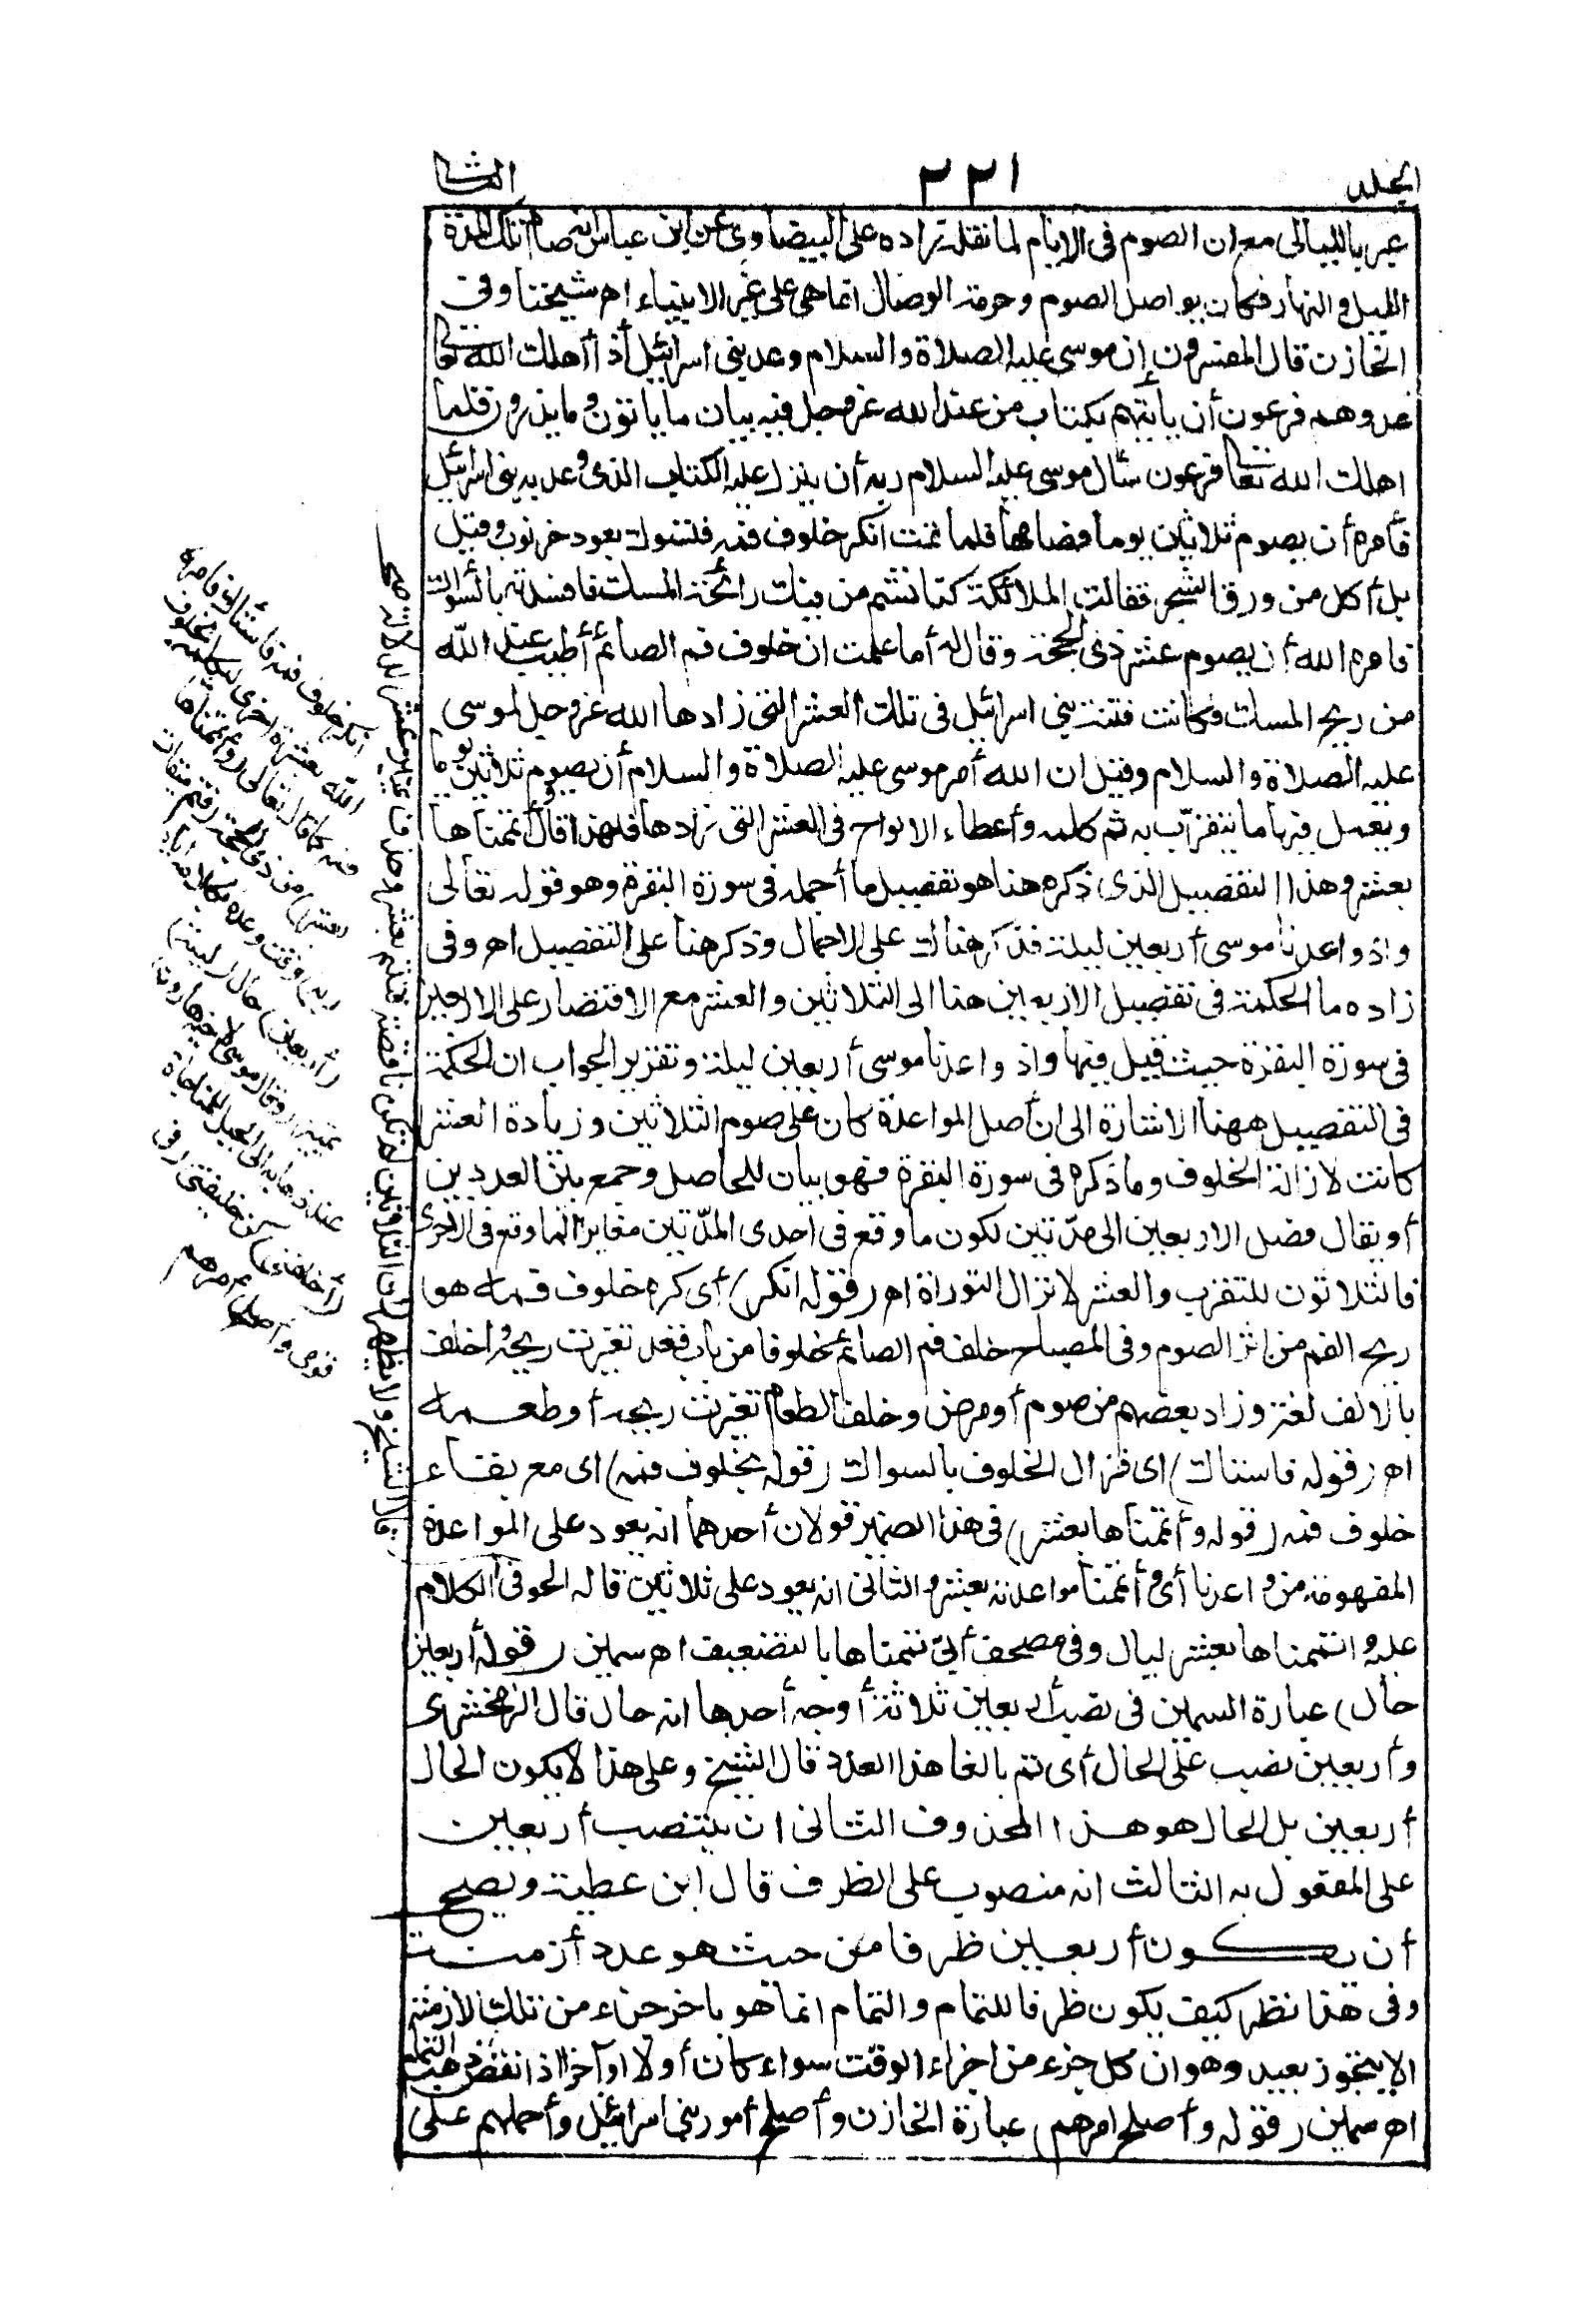 الجلد ٢٢١ الثانى
عبر بالليالى مع ان الصوم فى الايام لما نقله زاده على البيضاوى عن ابن عباس انه صام تلك المدة
الليل والنهار فكان يواصل الصوم وحرمة الوصال انما هى على غير الانبياء اه شيخنا وفى
الخازن قال المفسرون إن موسى عليه الصلاة والسلام وعد بنى اسرائيل أذا أهلك الله تعالى
عدوهم فرعون أن يأتيهم بكتاب من عند الله عز وجل فيه بيان ما يأتون وما يذرون فلما
اهلك الله تعالى فرعون سأل موسى عليه السلام ربه أن ينزل عليه الكتاب الذى وعد به بنى اسرائيل
فأمره أن يصوم ثلاثين يوما فصامها فلما تمت انكر خلوف فمه فتسوك بعود خرنوب وقيل
بل أكل من ورق الشجر فقالت الملائكة كنا نشم من فيك رائحة المسك فافسدته بالسواك
فامره الله أن يصوم عشر ذى الحجة وقال له أما علمت ان خلوف فم الصائم أطيب عند الله
من ريح المسك فكانت فتنة بنى اسرائيل فى تلك العشر التى زادها الله عز وجل لموسى
عليه الصلاة والسلام وقيل ان الله أمر موسى عليه الصلاة والسلام أن يصوم ثلاثين يوما
ويعمل فيها ما يتقرّب به ثم كلمه وأعطاه الالواح فى العشر التى زادها فلهذا قال وأتممناها
بعشر وهذا التفصيل الذى ذكره هنا هو تفصيل ما أجمله فى سورة البقرة وهو قوله تعالى
واذ واعدنا موسى أربعين ليلة فذكر هناك على الاجمال وذكر هنا على التفصيل اه وفى
زاده ما الحكمة فى تفصيل الاربعين هنا الى الثلاثين والعشر مع الاقتصار على الاربعين
فى سورة البقرة حيث قيل فيها واذ واعدنا موسى أربعين ليلة وتقرير الجواب ان الحكمة
فى التفصيل ههنا الاشارة الى ان أصل المواعدة كان على صوم الثلاثين وزيادة العشر
كانت لازالة الخلوف وما ذكره فى سورة البقرة فهو بيان للحاصل وجمع بين العددين
أو يقال فصل الاربعين الى مدّتين لكون ما وقع فى احدى المدّتين مغايرا لما وقع فى الاخرى
فالثلاثون للتقرب والعشر لانزال التوراة اه (قوله انكر) أى كره خلوف فمه هو
ريح الفم من اثر الصوم وفى المصباح خلف فم الصائم خلوفا من باب قعد تغيرت ريحه واخلف
بالالف لغة وزاد بعضهم من صوم أو مرض وخلف الطعام تغيرت ريحه أو طعمه
اه (قوله فاستاك) اى فزال الخلوف بالسواك (قوله بخلوف فمه) اى مع بقاء
خلوف فمه (قوله وأتممناها بعشر) فى هذا الضمير قولان أحدهما انه يعود على المواعدة
المفهومة من واعدنا أى وأتممنا مواعدته بعشر والثانى انه يعود على ثلاثين قاله الحوفى الكلام
عليه واتممناها بعشر ليال وفى مصحف أبىّ تممناها بالتضعيف اه سمين (قوله أربعين
حال) عبارة السمين فى نصب أربعين ثلاثة أوجه أحدها انه حال قال الزمخشرى
وأربعين نصب على الحال أى تم بالغا هذا العدد قال الشيخ وعلى هذا لا يكون الحال
أربعين بل الحال هو هذا المحذوف الثانى ان ينتصب أربعين
على المفعول به الثالث انه منصوب على الظرف قال ابن عطية ويصح
أن يكون أربعين ظرفا من حيث هو عدد أزمنة
وفى هذا نظر كيف يكون ظرفا للتمام والتمام انما هو باخر جزء من تلك الازمنة
الا بتجوز بعيد وهو ان كل جزء من اجزاء الوقت سواء كان أولا او آخرا اذا نقص ذهب التمام
اه سمين (قوله وأصلح امرهم) عبارة الخازن وأصلح أمور بنى اسرائيل وأحملهم على
انكر خلوف فمه فاستاك فامره
الله بعشرة اخرى ليكلمه بخلوف
فمه كما قال تعالى (وأتممناها
بعشر) من ذى الحجة (فتم ميقات
ربه) وقت وعده بكلامه اياه
(أربعين) حال (ليلة)
تمييز (وقال موسى لاخيه هارون)
عند ذهابه الى الجبل للمناجاة
(اخلفنى) كن خليفتى (فى
قومى وأصلح) أمرهم